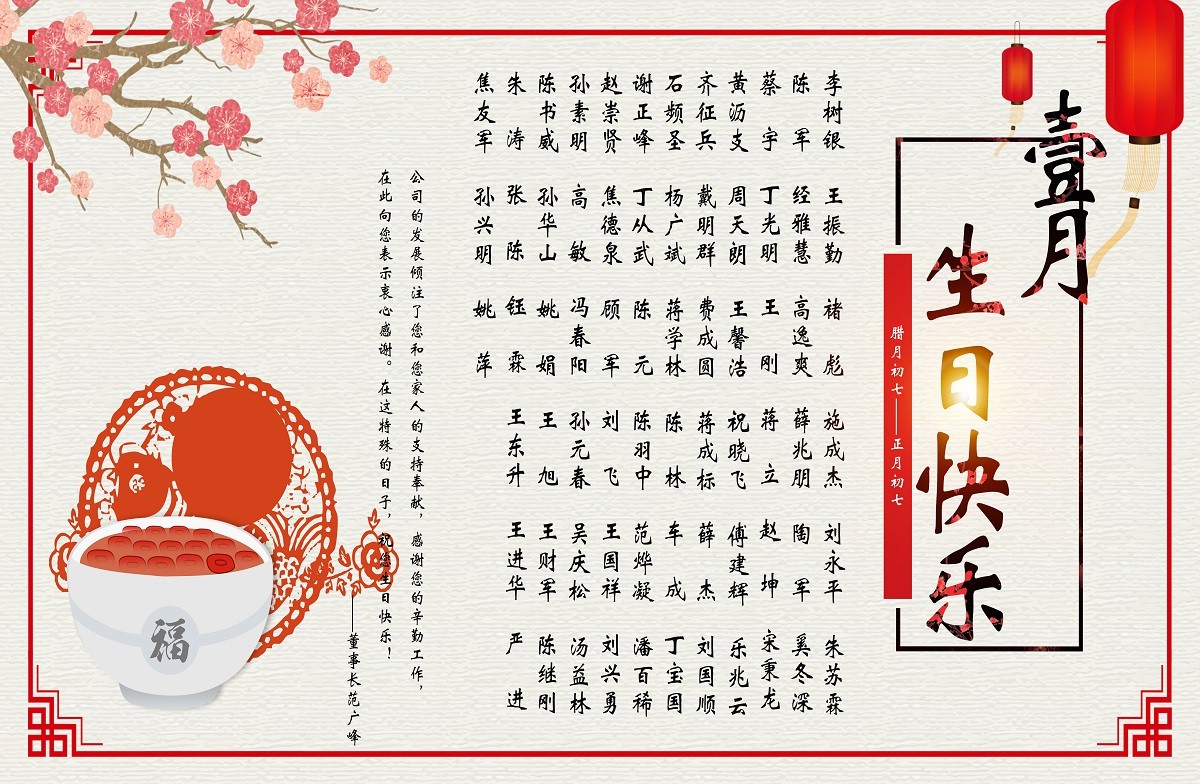 壹月
生日快乐
腊月初七——正月初七
李树银 王振勤 褚彪 施成杰 刘永平 朱苏霖
陈军 经雅慧 高逸爽 薛兆朋 陶军 奚冬深
蔡宇 丁光明 王刚 蒋立 赵坤 宋秉龙
黄沥支 周天朗 王馨浩 祝晓飞 傅建辉 乐兆云
齐征兵 戴明群 费成圆 蒋成标 薛杰 刘国顺
石频圣 杨广斌 蒋学林 陈林 车成 丁宝国
谢正峰 丁从武 陈元 陈羽中 范烨凝 潘百稀
赵崇贤 焦德泉 顾军 刘飞 王国祥 刘兴勇
孙素明 高敏 冯春阳 孙元春 吴庆松 汤益林
陈书威 孙华山 姚娟 王旭 王财军 陈继刚
朱涛 张陈 钰霖 王东升 王进华 严进
焦友军 孙兴明 姚萍
公司的发展倾注了您和您家人的支持奉献，感谢您的辛勤工作，
在此向您表示衷心感谢。在这特殊的日子，祝您生日快乐！
——董事长范广峰
福